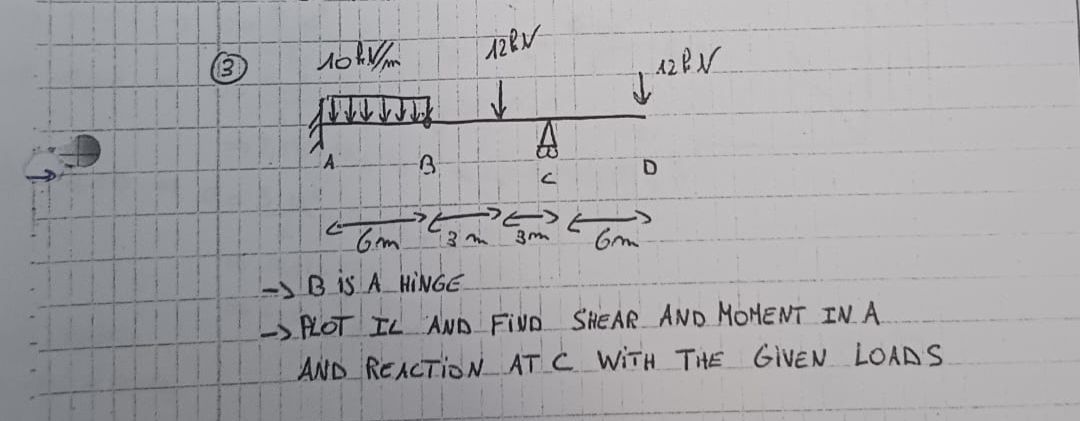 3
10kN/m
12kN
12kN
A
B
C
D
6m
3m
3m
6m
-> B iS A HiNGE
-> PLOT IL AND FiND SHEAR AND MOMENT IN A
AND REACTiON AT C WiTH THE GiVEN LOADS